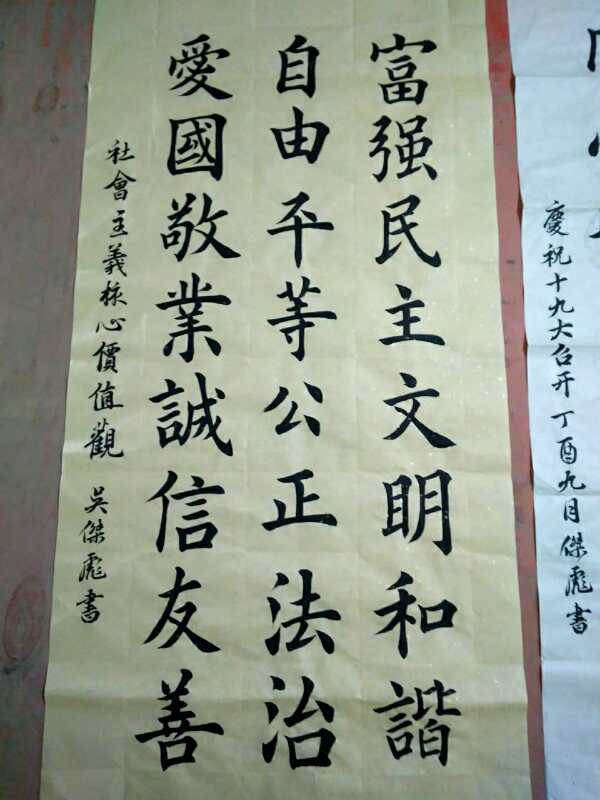 慶祝十九大召开丁酉九月傑彪書
富强民主文明和諧
自由平等公正法治
愛國敬業誠信友善
社會主義核心價值觀 吳傑彪書